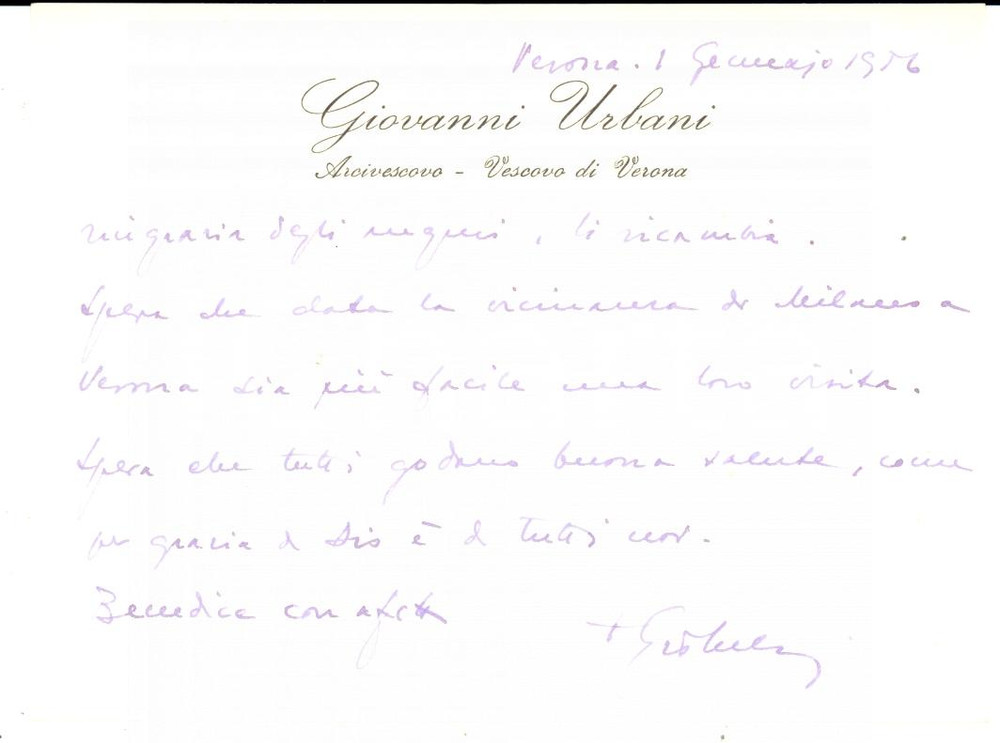 Verona. 1 Gennajo 1956
Giovanni Urbani
Arcivescovo - Vescovo di Verona
ringrazia degli auguri, li ricambia.
Spera che data la vicinanza di Milano a
Verona sia più facile una loro visita.
Spera che tutti godano buona salute, come
per grazia di Dio è di tutti noi.
Benedice con affetto
+